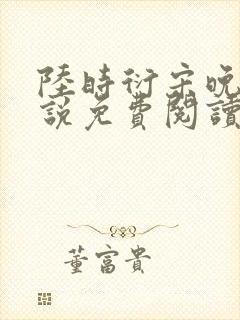 陸時衍宋晚
說免費閱讀
董富貴